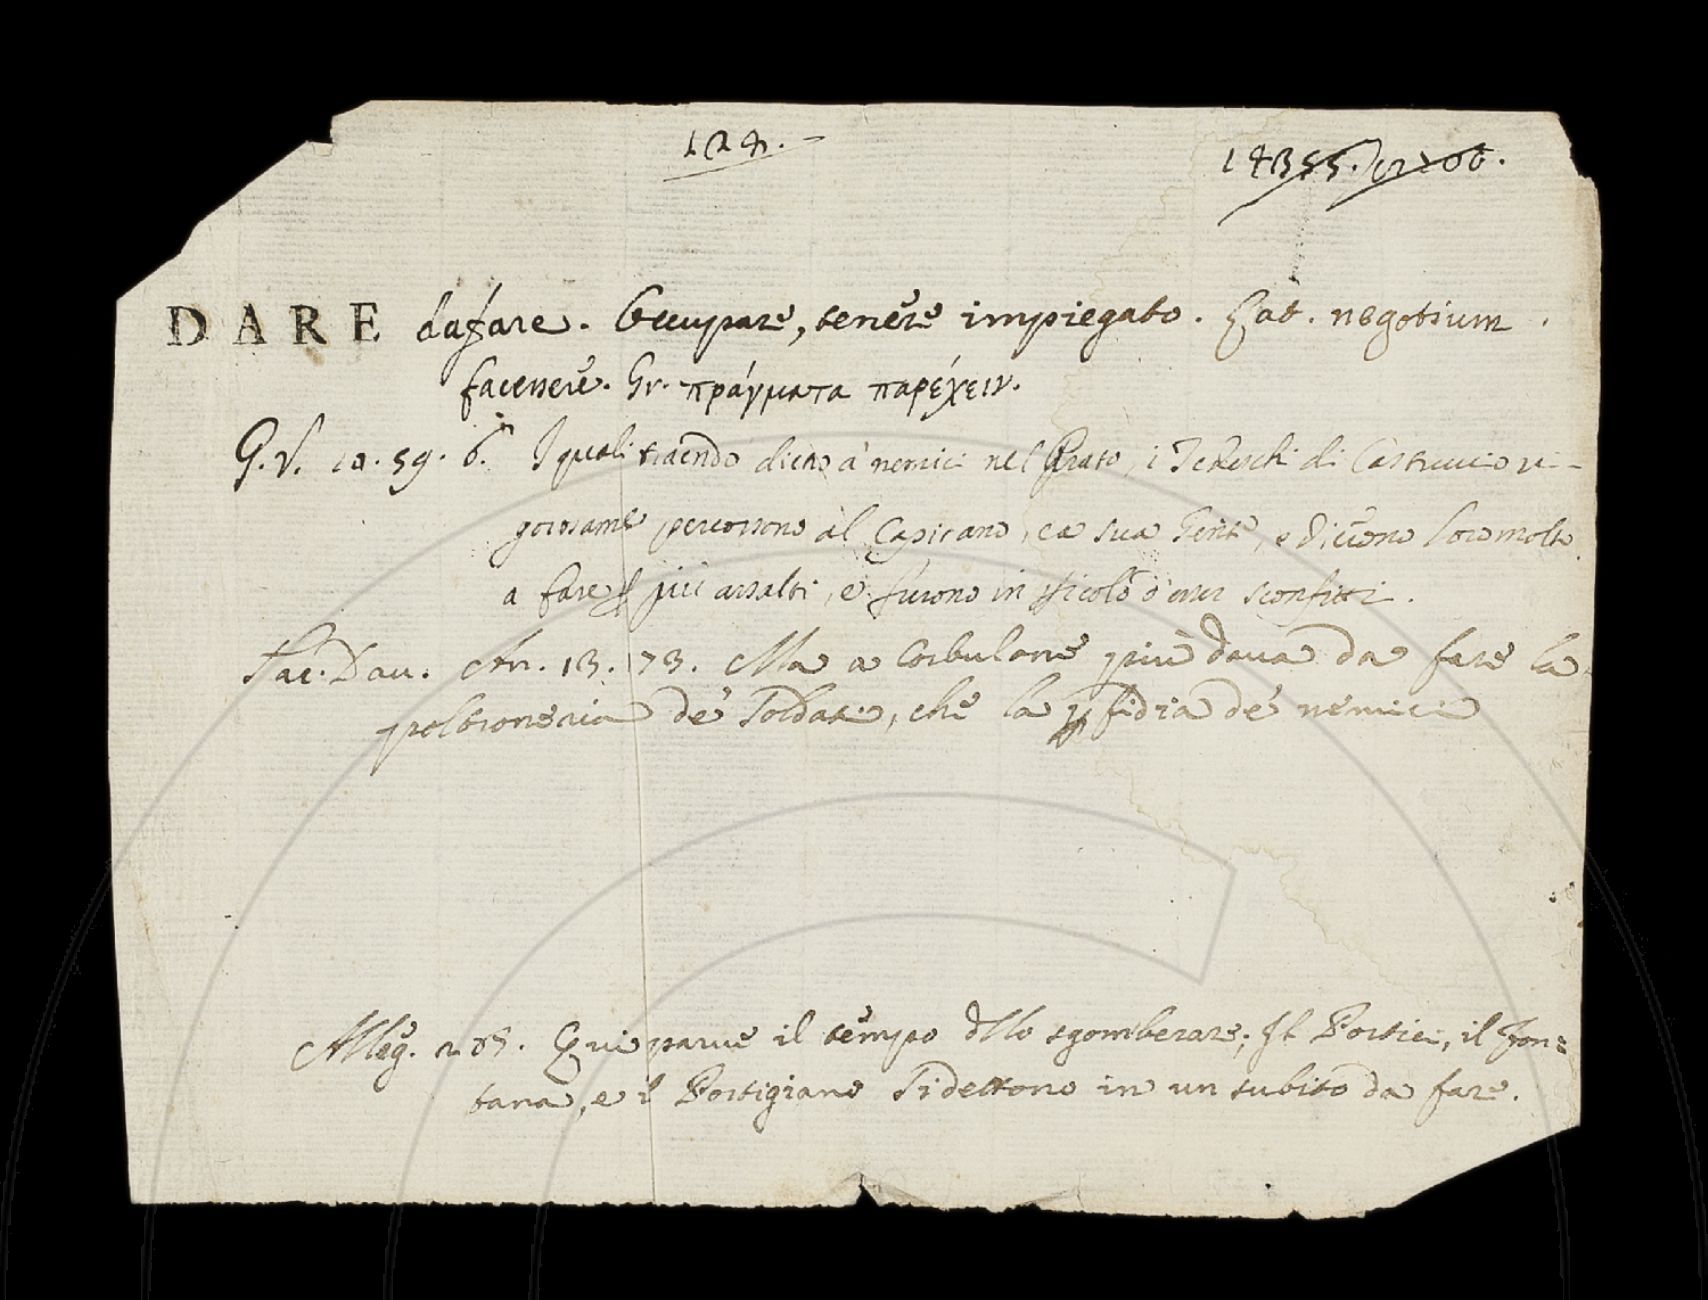 124.
DARE dafare. Occupare, tenere impiegato. Lat. negotium
facessere. Gr. πράγματα παρέχειν.
G. V. 10. 59. 6. I quali traendo dietro a' nemici nel Prato, i Tedeschi di Castruccio vi-
gorosam.te percossono al Capitano, e a sua Gente, e dierono loro molto
a fare p più assalti, e furono in picolo d'esser sconfitti.
Tac. Dav. An. 13. 173. Ma a Corbulone più dava da fare la
poltroneria de' Soldati, che la pfidia de' nemici
Alleg. 205. Qui parve il tempo dllo sgomberare; Il Portici, il Fon=
tana, e il Portigiano Ti dettono in un subito da fare.